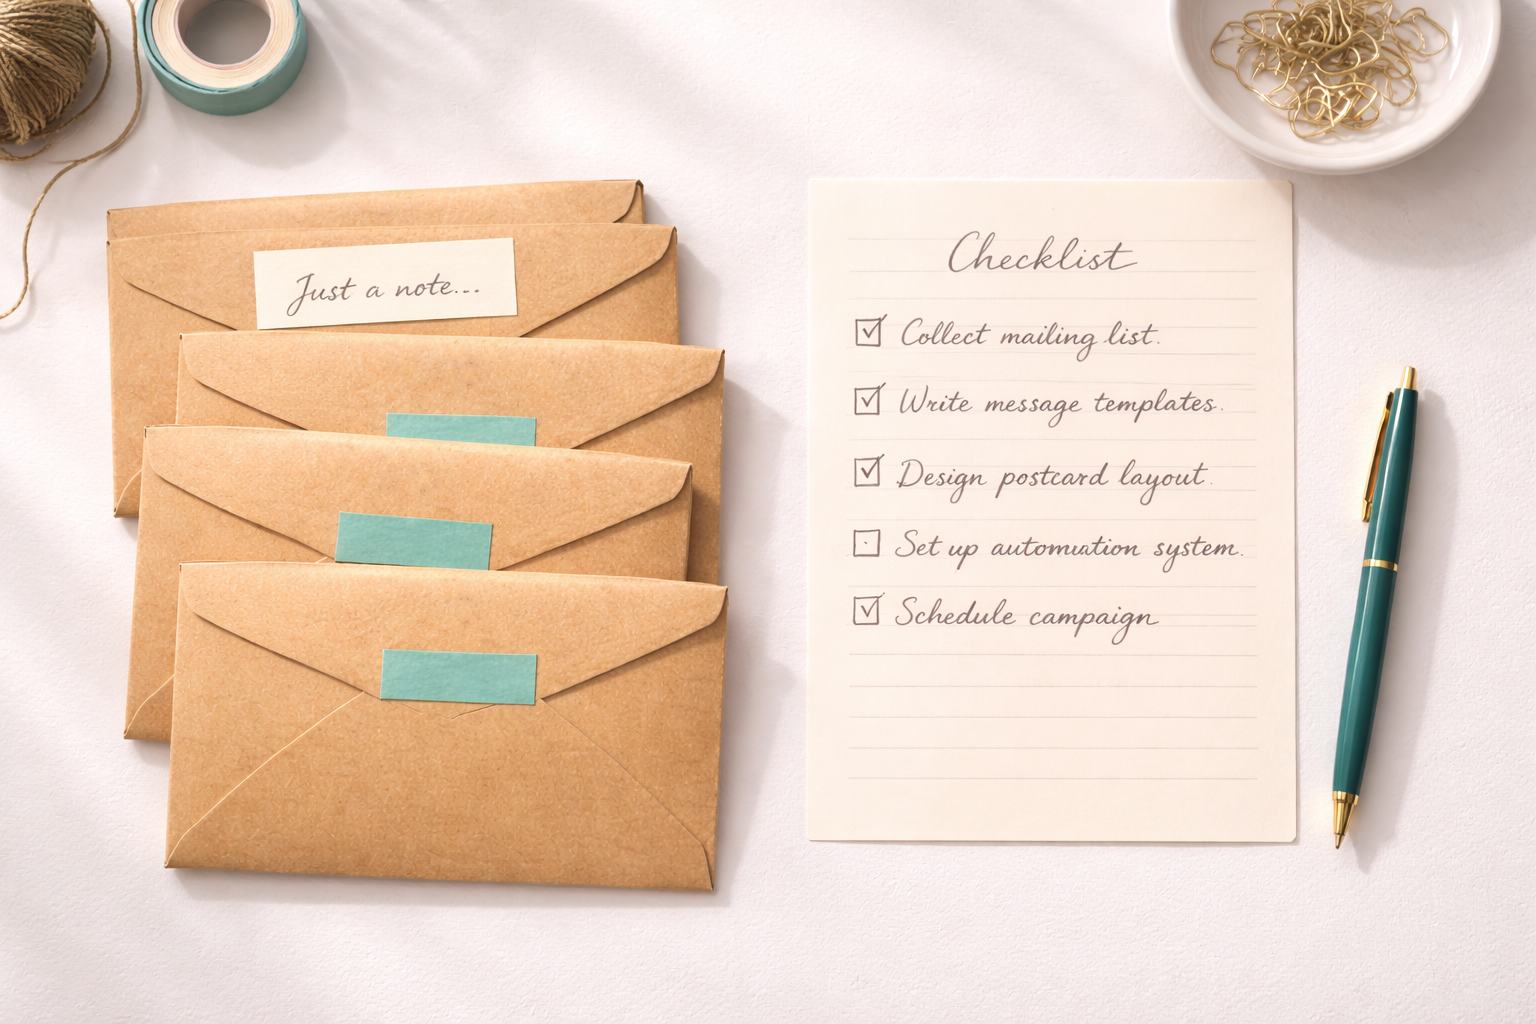 Just a note...
Checklist
Collect mailing list.
Write message templates.
Design postcard layout.
Set up automation system.
Schedule campaign